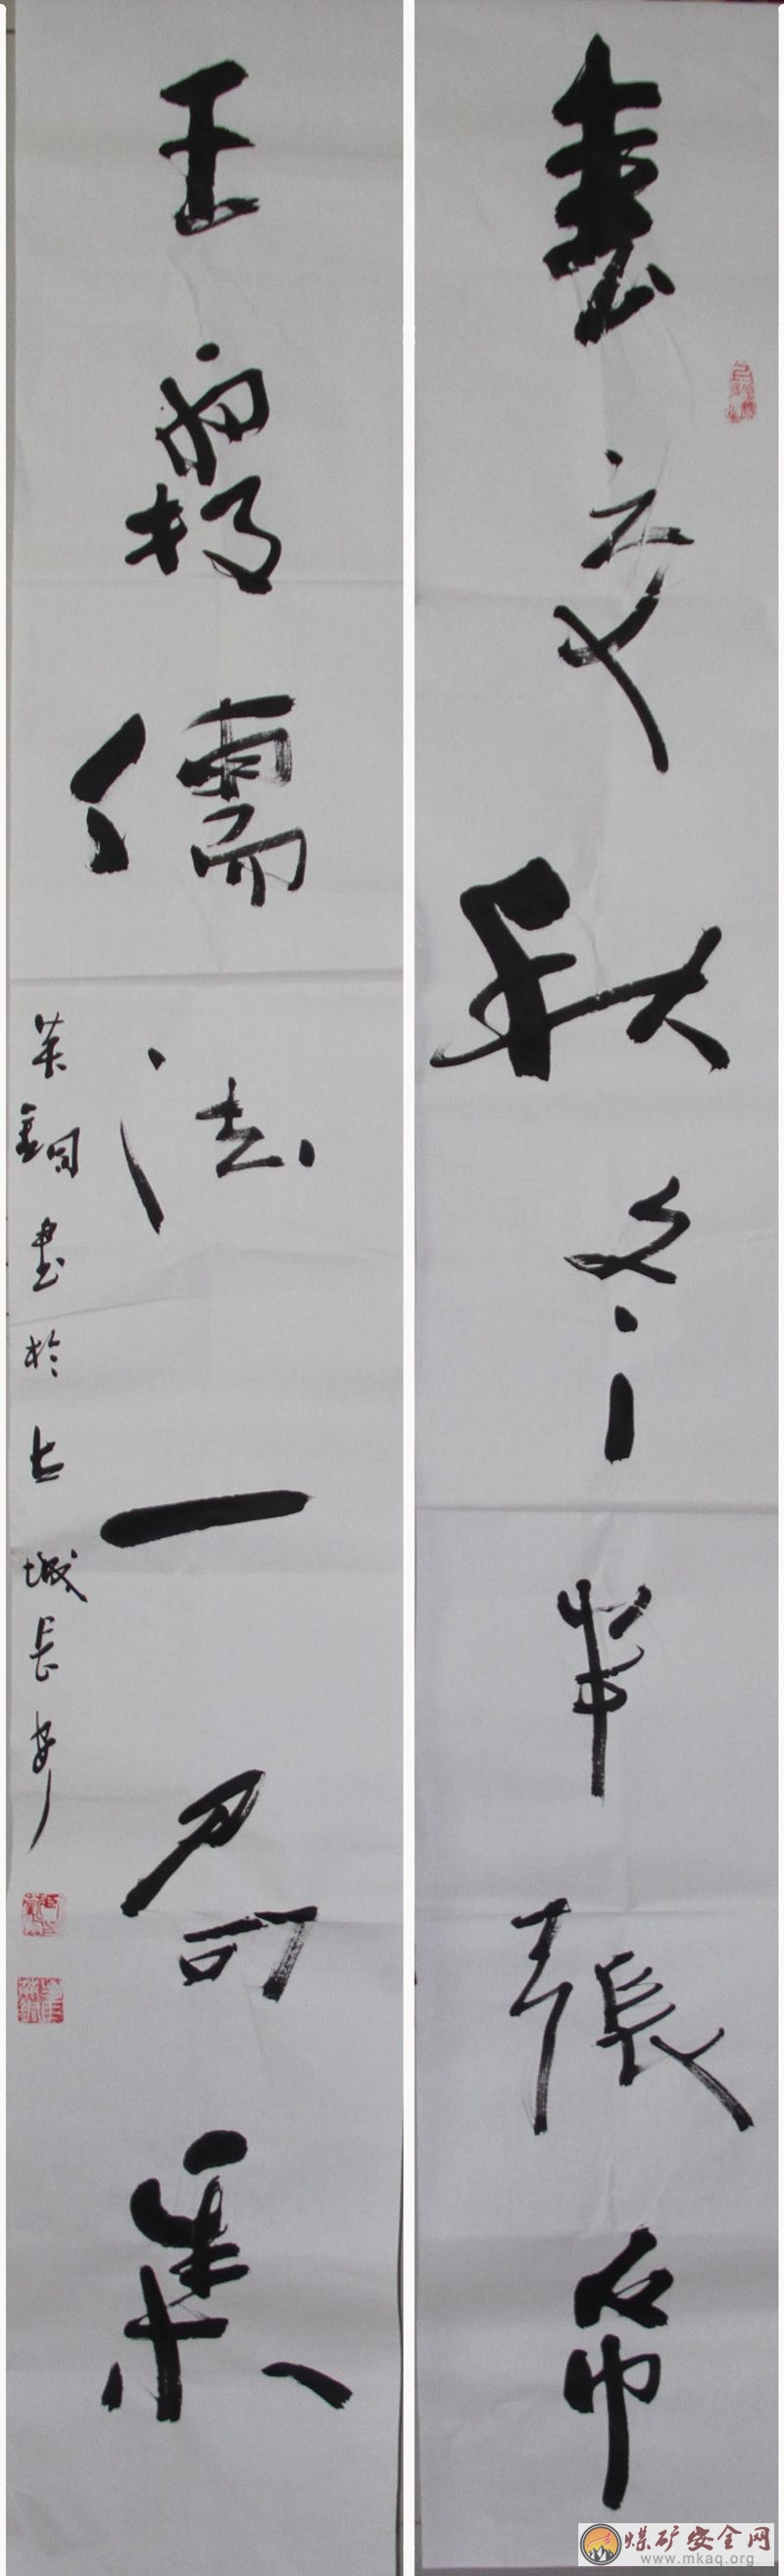 春夏秋冬半張帋
王霸儒法一局棊
英銅書於古城長安
煤矿安全网
www.mkaq.org